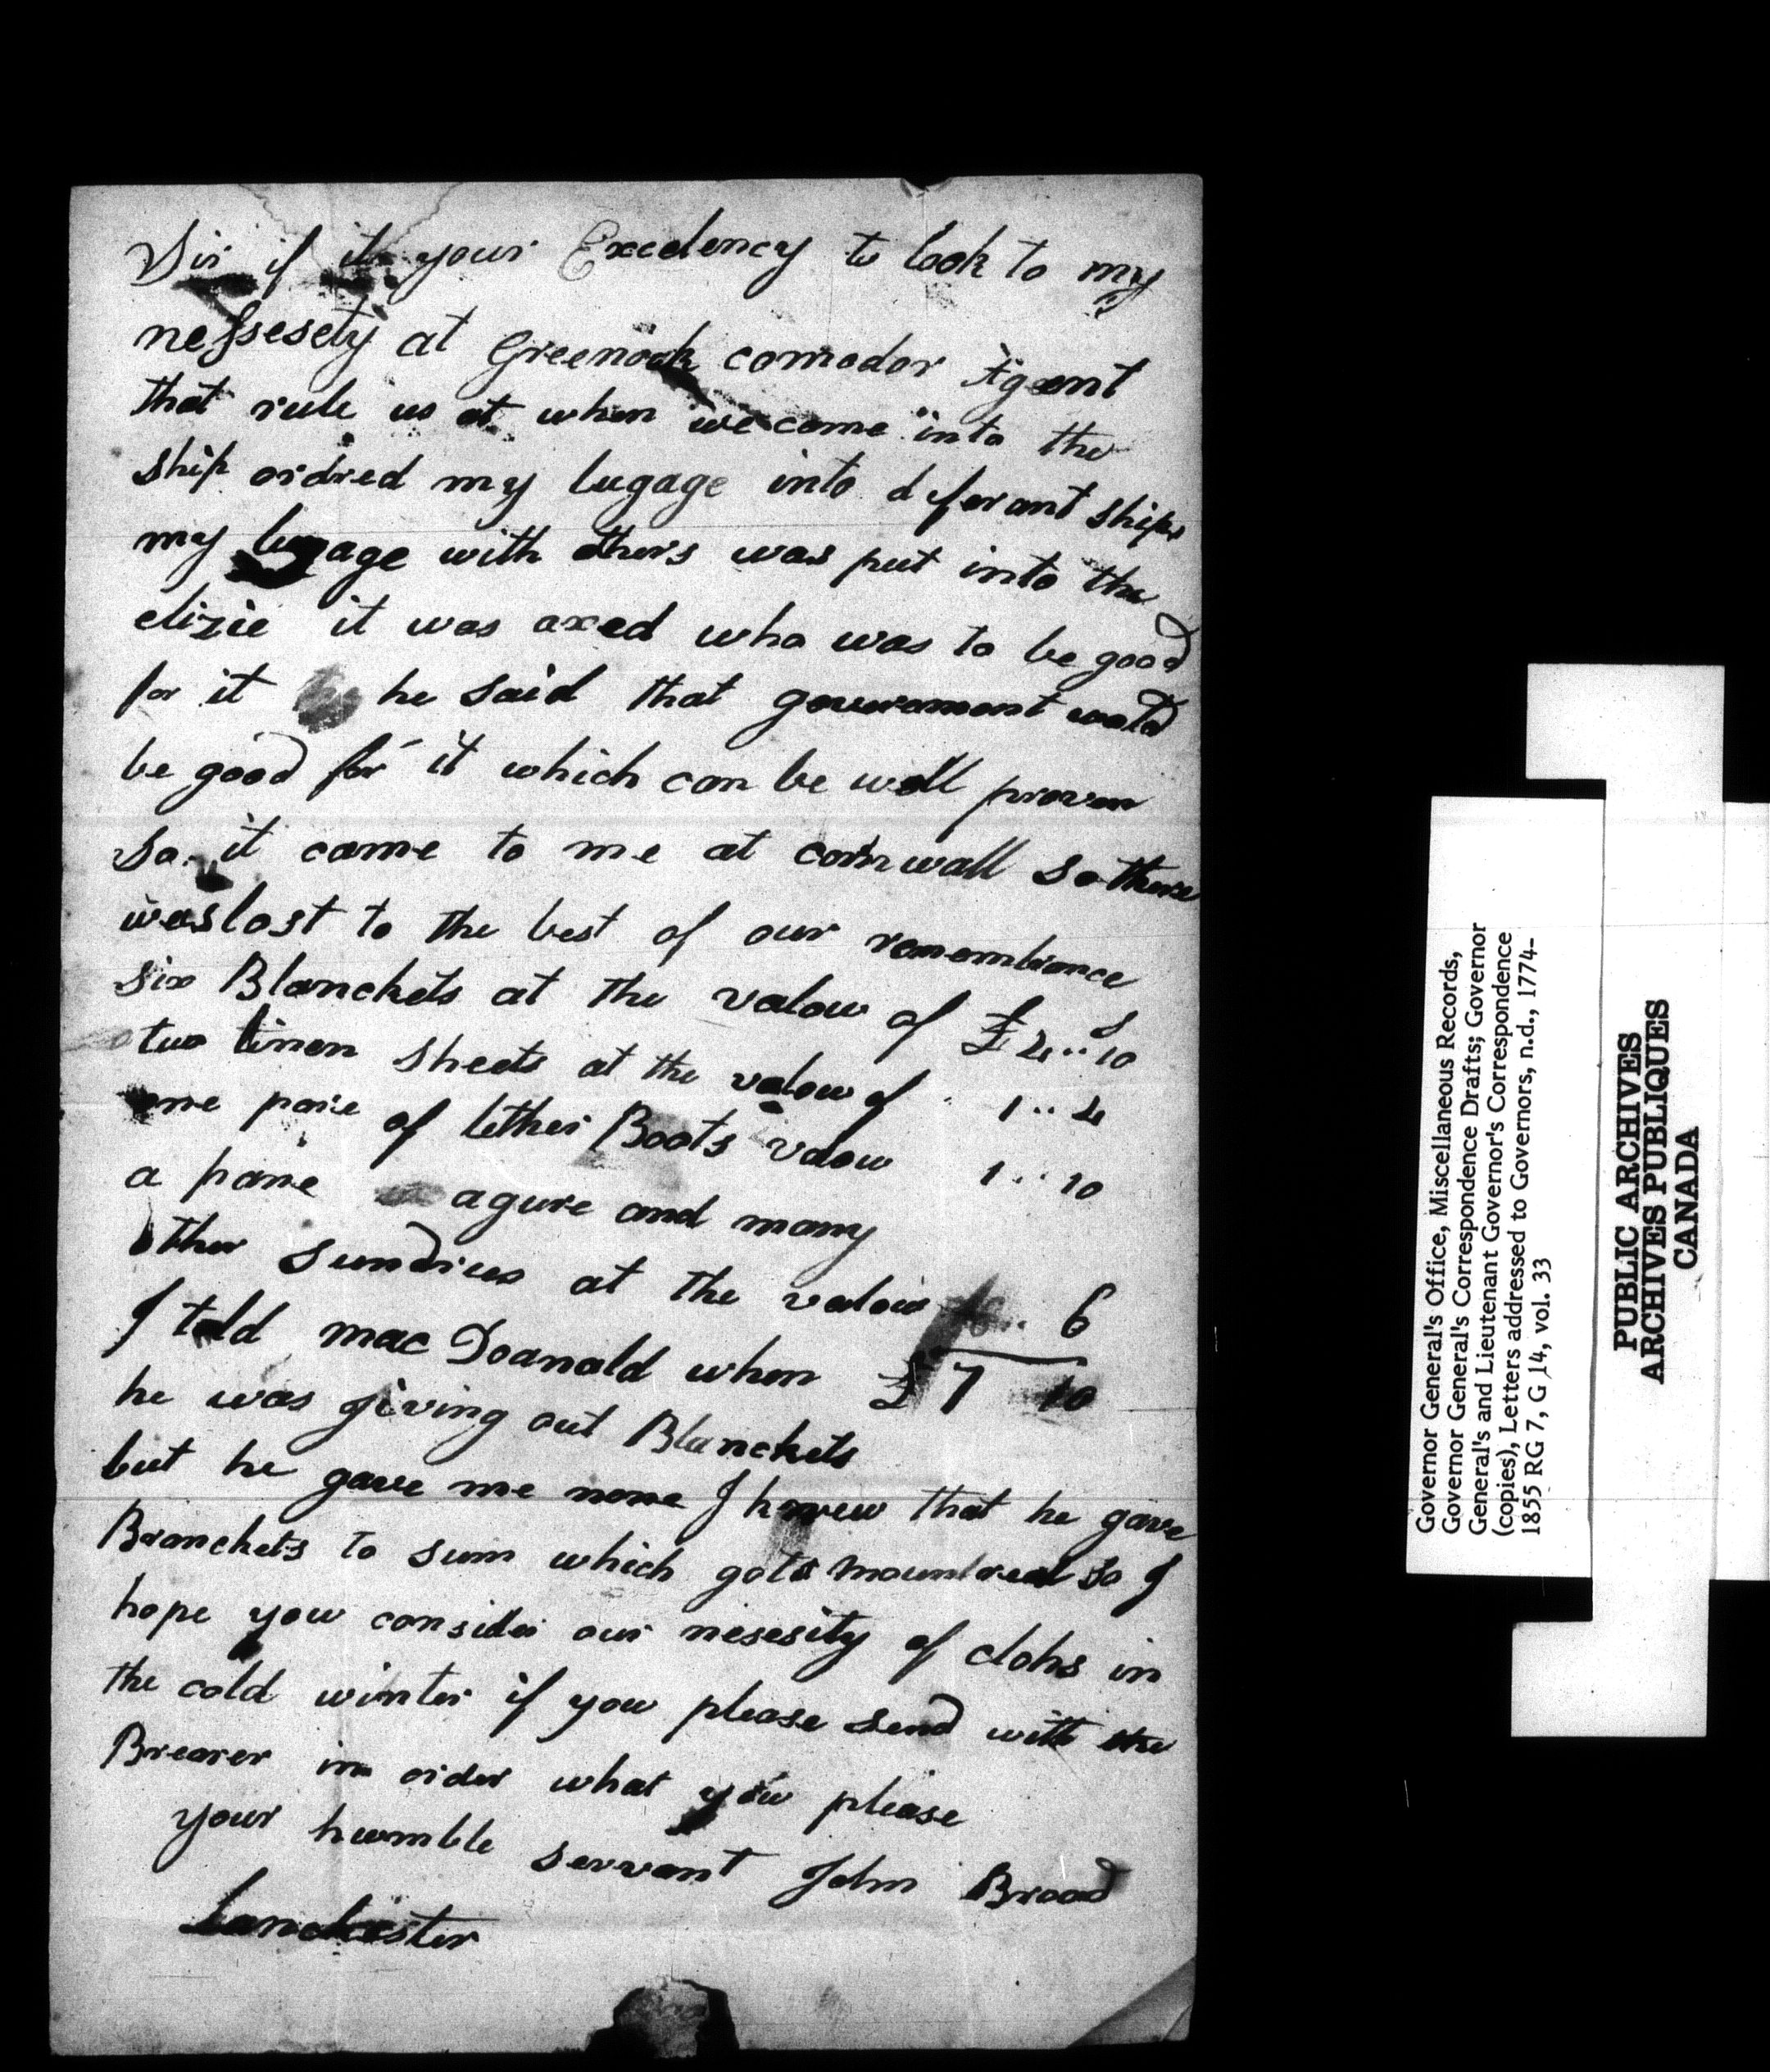 Sir if it your Excelency to look to my
nessesety at Greenock comodor Agent
that rule us at when we come into the
ship ordred my lugage into deferant ships
my lugage with others was put into the
elizie it was axed who was to be good
for it he said that government wold
be good for it which can be well proven
so it came to me at cornwall so there
was lost to the best of our remembrance
six Blanckets at the valow of £2..10
two linen sheets at the valow of 1..4
one paire of lether Boots valow 1..10
a paire agure and many
other sundries at the valow 6
I told mac Doanald when £7 10
he was giving out Blanckets
but he gave me none I knew that he gave
Branckets to sum which got mountreal so I
hope you consider our nesesity of clohs in
the cold winter if you please send with the
Brearer in order what you please
your humble servant John Broad
Lanckister
Governor General's Office, Miscellaneous Records,
Governor General's Correspondence Drafts; Governor
General's and Lieutenant Governor's Correspondence
(copies), Letters addressed to Governors, n.d., 1774-
1855 RG 7, G 14, vol. 33
PUBLIC ARCHIVES
ARCHIVES PUBLIQUES
CANADA